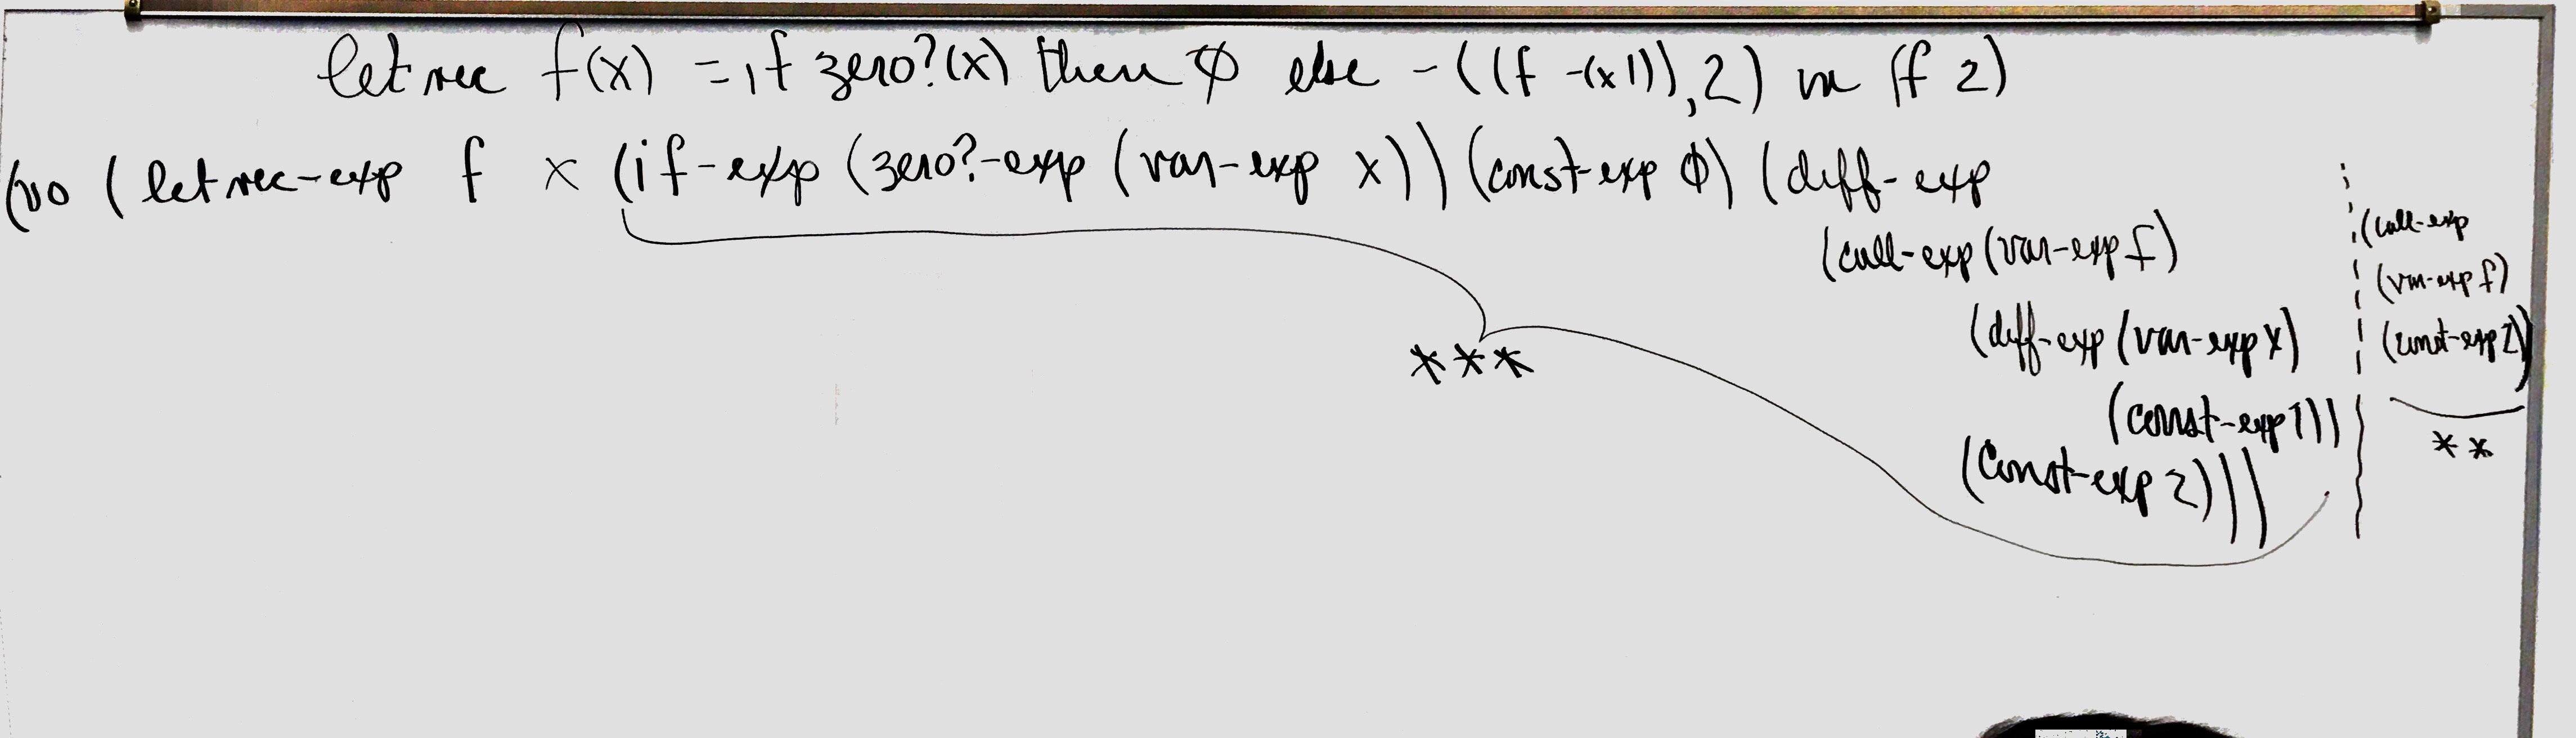 let rec f(x) = if zero?(x) then 0 else -((f -(x 1)),2) in (f 2)
(vo (letrec-exp f x (if-exp (zero?-exp (var-exp x)) (const-exp 0) (diff-exp
(call-exp (var-exp f)
(diff-exp (var-exp x)
(const-exp 1)))
(const-exp 2)))
***
(call-exp
(var-exp f)
(const-exp 2))
**